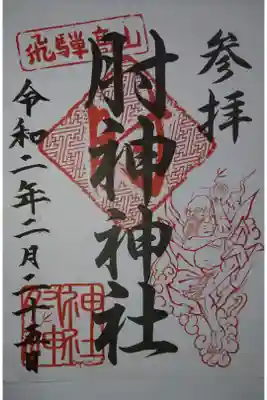 参拝
肘神神社
飛騨高山
令和二年二月二十五日
肘神神社